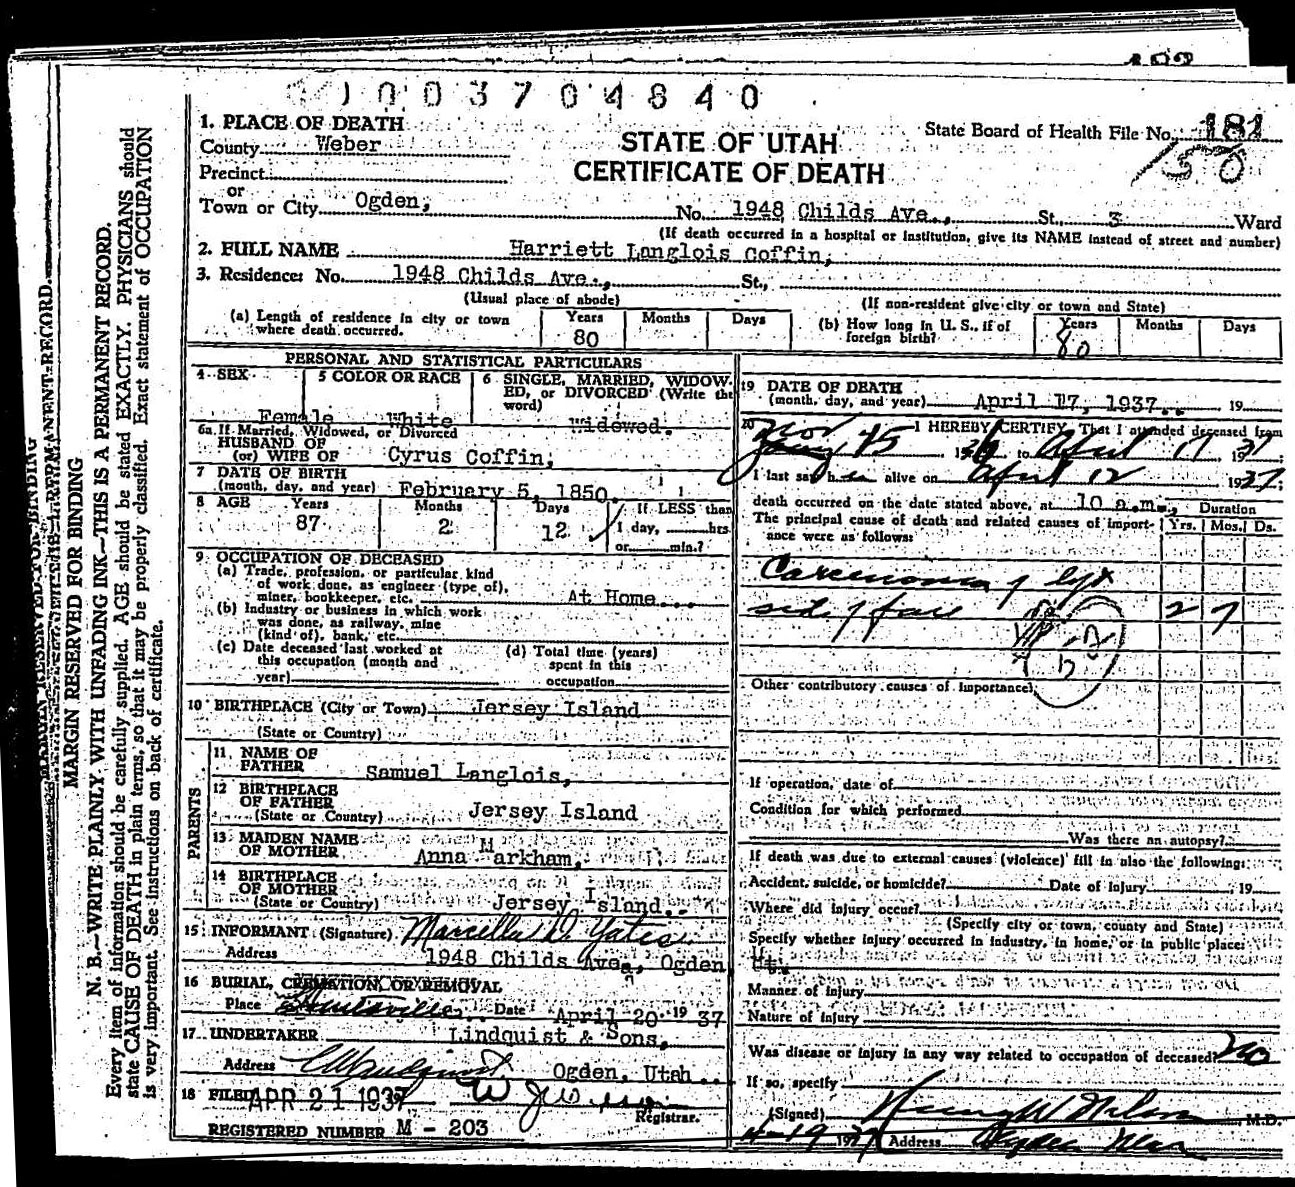 1003704840
1. PLACE OF DEATH
County Weber
STATE OF UTAH
State Board of Health File No. 181
150
Precinct
CERTIFICATE OF DEATH
or
Town or City Ogden, No. 1948 Childs Ave., St. 3 Ward
(If death occurred in a hospital or institution, give its NAME instead of street and number)
2. FULL NAME Harriett Langlois Coffin,
3. Residence: No. 1948 Childs Ave., St.,
(Usual place of abode) (If non-resident give city or town and State)
(a) Length of residence in city or town where death occurred. Years 80 Months Days
(b) How long in U. S., if of foreign birth? Years 80 Months Days
PERSONAL AND STATISTICAL PARTICULARS
4 SEX Female
5 COLOR OR RACE White
6 SINGLE, MARRIED, WIDOWED, or DIVORCED (Write the word) Widowed.
6a If Married, Widowed, or Divorced
HUSBAND OF
(or) WIFE OF Cyrus Coffin,
7 DATE OF BIRTH
(month, day, and year) February 5, 1850.
8 AGE Years 87 Months 2 Days 12 If LESS than
1 day, hrs.
or min.?
9 OCCUPATION OF DECEASED
(a) Trade, profession, or particular kind
of work done, as engineer (type of),
miner, bookkeeper, etc. At Home
(b) Industry or business in which work
was done, as railway, mine
(kind of), bank, etc.
(c) Date deceased last worked at
this occupation (month and
year)
(d) Total time (years)
spent in this
occupation
10 BIRTHPLACE (City or Town) Jersey Island
(State or Country)
PARENTS
11 NAME OF
FATHER Samuel Langlois,
12 BIRTHPLACE
OF FATHER
(State or Country) Jersey Island
13 MAIDEN NAME
OF MOTHER Anna Markham,
14 BIRTHPLACE
OF MOTHER
(State or Country) Jersey Island.
15 INFORMANT (Signature) Marcella D. Yates
Address 1948 Childs Ave., Ogden Ut.
16 BURIAL, CREMATION, OR REMOVAL
Place Huntsville Date April 20 19 37
17 UNDERTAKER Lindquist & Sons,
Address Ogden, Utah
18 FILED APR 21 1937
Registrar.
REGISTERED NUMBER M - 203
19 DATE OF DEATH
(month, day, and year) April 17, 1937. 19
20 I HEREBY CERTIFY, That I attended deceased from
Nov 15 1936 to April 17 1937;
I last saw h alive on April 12 1937;
death occurred on the date stated above, at 10 a.m.,
The principal cause of death and related causes of importance were as follows:
Duration
Yrs. Mos. Ds.
Carcenoma of left
side of face 2 7
Other contributory causes of importance:
If operation, date of
Condition for which performed
Was there an autopsy?
If death was due to external causes (violence) fill in also the following:
Accident, suicide, or homicide? Date of Injury 19
Where did injury occur?
(Specify city or town, county and State)
Specify whether injury occurred in industry, in home, or in public place:
Manner of injury
Nature of injury
Was disease or injury in any way related to occupation of deceased? No
If so, specify
(Signed) M.D.
4-19 1937 Address Ogden
MARGIN RESERVED FOR BINDING
N. B.—WRITE PLAINLY WITH UNFADING INK—THIS IS A PERMANENT RECORD.
Every item of information should be carefully supplied. AGE should be stated EXACTLY. PHYSICIANS should
state CAUSE OF DEATH in plain terms, so that it may be properly classified. Exact statement of OCCUPATION
is very important. See instructions on back of certificate.